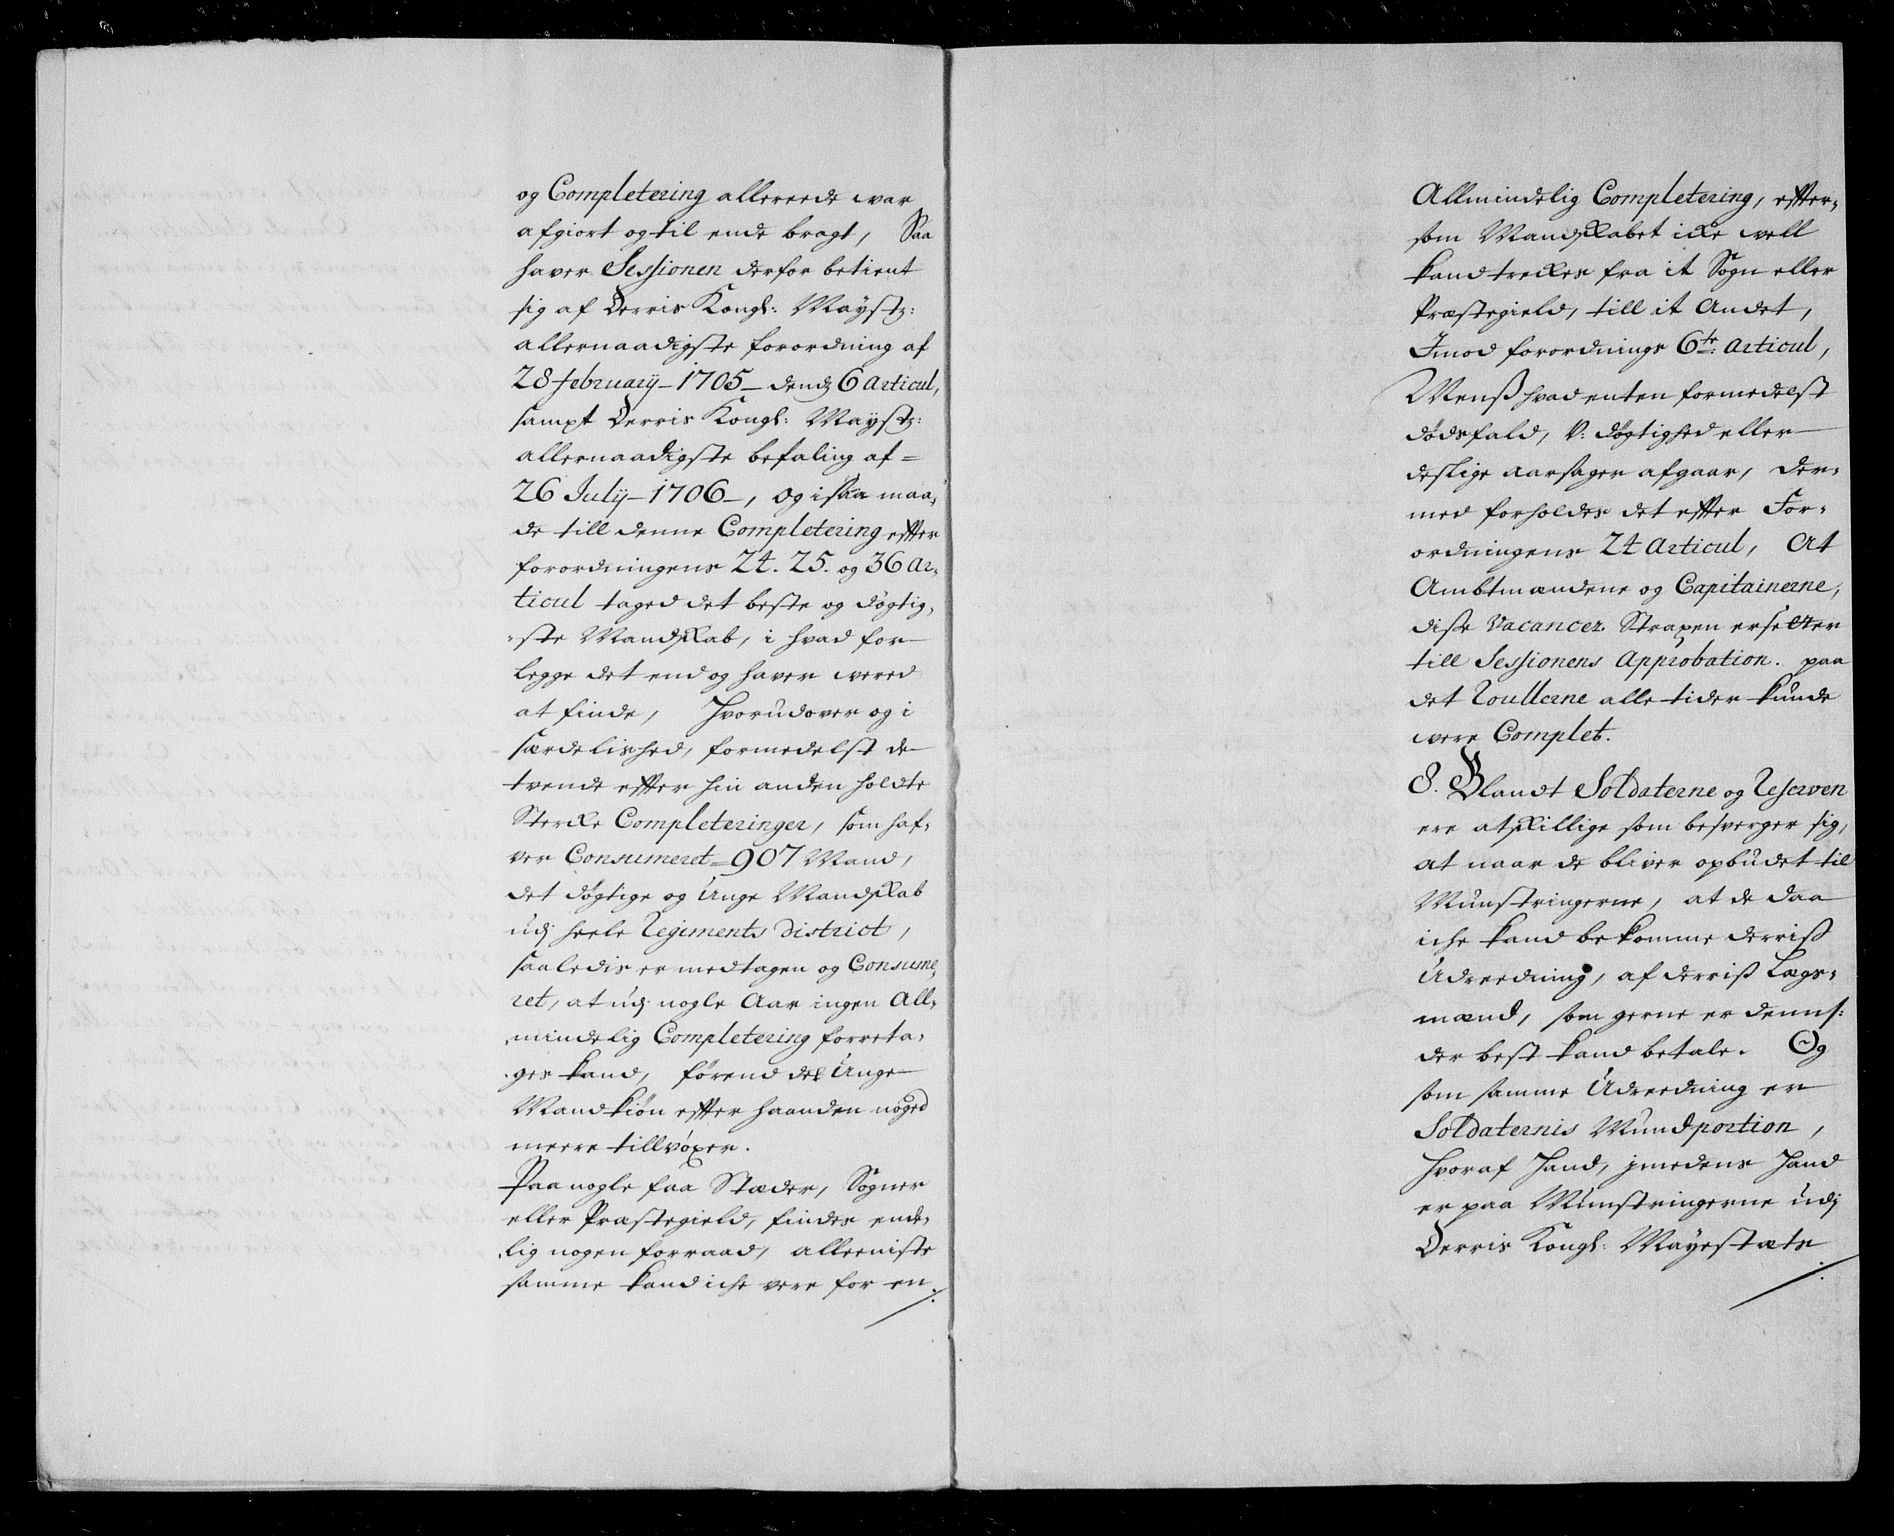 og Completering allereede war
afgiort og til ende bragt, Saa
haver Sessionen derfor betient
sig af Derris Kongl: Mayst:
allernaadigste forordning af
28 february - 1705 - dend 6 Articul,
sampt Derris Kongl: Mayst:
allernaadigste befaling af =
26 July - 1706 -, og i saa maa-
de till denne Completering effter
forordningens 24. 25. og 36 Ar-
ticul taged det beste og døgtig-
ste Mandskab, i hvad for
Legge det end og haver wered
at finde, Hvorudover og i
særdelished, formedelst de
tvende effter hin anden holdte
Stercke Completeringer, som haf-
ver Consumeret = 907 Mand,
det døgtige og Unge Mandskab
udj heele Regiments district,
saaledis er medtagen og Consume-
ret, at udj nogle Aar ingen All-
mindelig Completering forreta-
ges kand, førend det Unge
Mandkiøn effter haanden noged
meere tillvoxer.
Paa nogle faa Stæder, Sogner
eller Præstegield, findes ende-
lig nogen forraad, alleeniste
samme kand iche vere for en
Allmindelig Completering, effter-
som Mandskabet icke well
kand treckes fra it Sogn eller
Præstegield, till it Andet,
Imod forordnings 6te: Articul,
Menß hvad enten formedelst
dødsfald, U: døgtighed eller
deslige aarsager afgaar, der-
med forholdes det effter For-
ordningens 24 Articul, At
Ambtmændene og Capitainerne,
disse Vacancer Straxen ersetter
till Sessionens Approbation. paa
det Roullerne alle tider kunde
were Complet.
8. Blandt Soldaterne og Reserven
ere atskillige som besverger sig,
at naar de bliver opbudet til
Munstringerne, at de daa
iche kand bekomme derriß
Udreedning, af derriß Lægs-
mænd, som gerne er denns:
der best kand betale. Og
som samme Udreedning er
Soldaternis Mundportion,
hvoraf hand, jmedens hand
er paa Munstringerne udj
Derris Kongl: Mayestæts